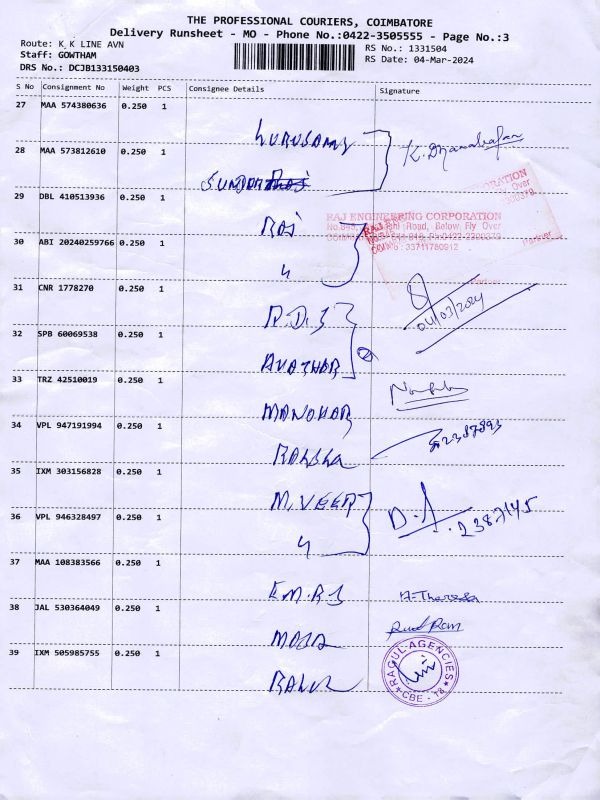 THE PROFESSIONAL COURIERS, COIMBATORE
Delivery Runsheet - MO - Phone No.:0422-3505555 - Page No.:3
Route: K K LINE AVN
RS No.: 1331504
Staff: GOWTHAM
RS Date: 04-Mar-2024
DRS No.: DCJB133150403
S No Consignment No Weight PCS Consignee Details Signature
27 MAA 574380636 0.250 1
GURUSAMY
K. Dhanabalan
28 MAA 573812610 0.250 1
SUNDAR
29 DBL 410513936 0.250 1
RAJ
RAJ ENGINEERING CORPORATION
Road, Below Fly Over
30 ABI 20240259766 0.250 1
"
33711780912
Partner
31 CNR 1778270 0.250 1
R.D.S
04/03/2024
32 SPB 60069538 0.250 1
AVATHAR
33 TRZ 42510019 0.250 1
MANOHAR
34 VPL 947191994 0.250 1
2387893
35 IXM 303156828 0.250 1
M.VEER
D.A
2387145
36 VPL 946328497 0.250 1
"
37 MAA 108383566 0.250 1
E.M.R.S
A. Theresa
38 JAL 530364049 0.250 1
39 IXM 505985755 0.250 1
RAGUL AGENCIES
CBE - 18